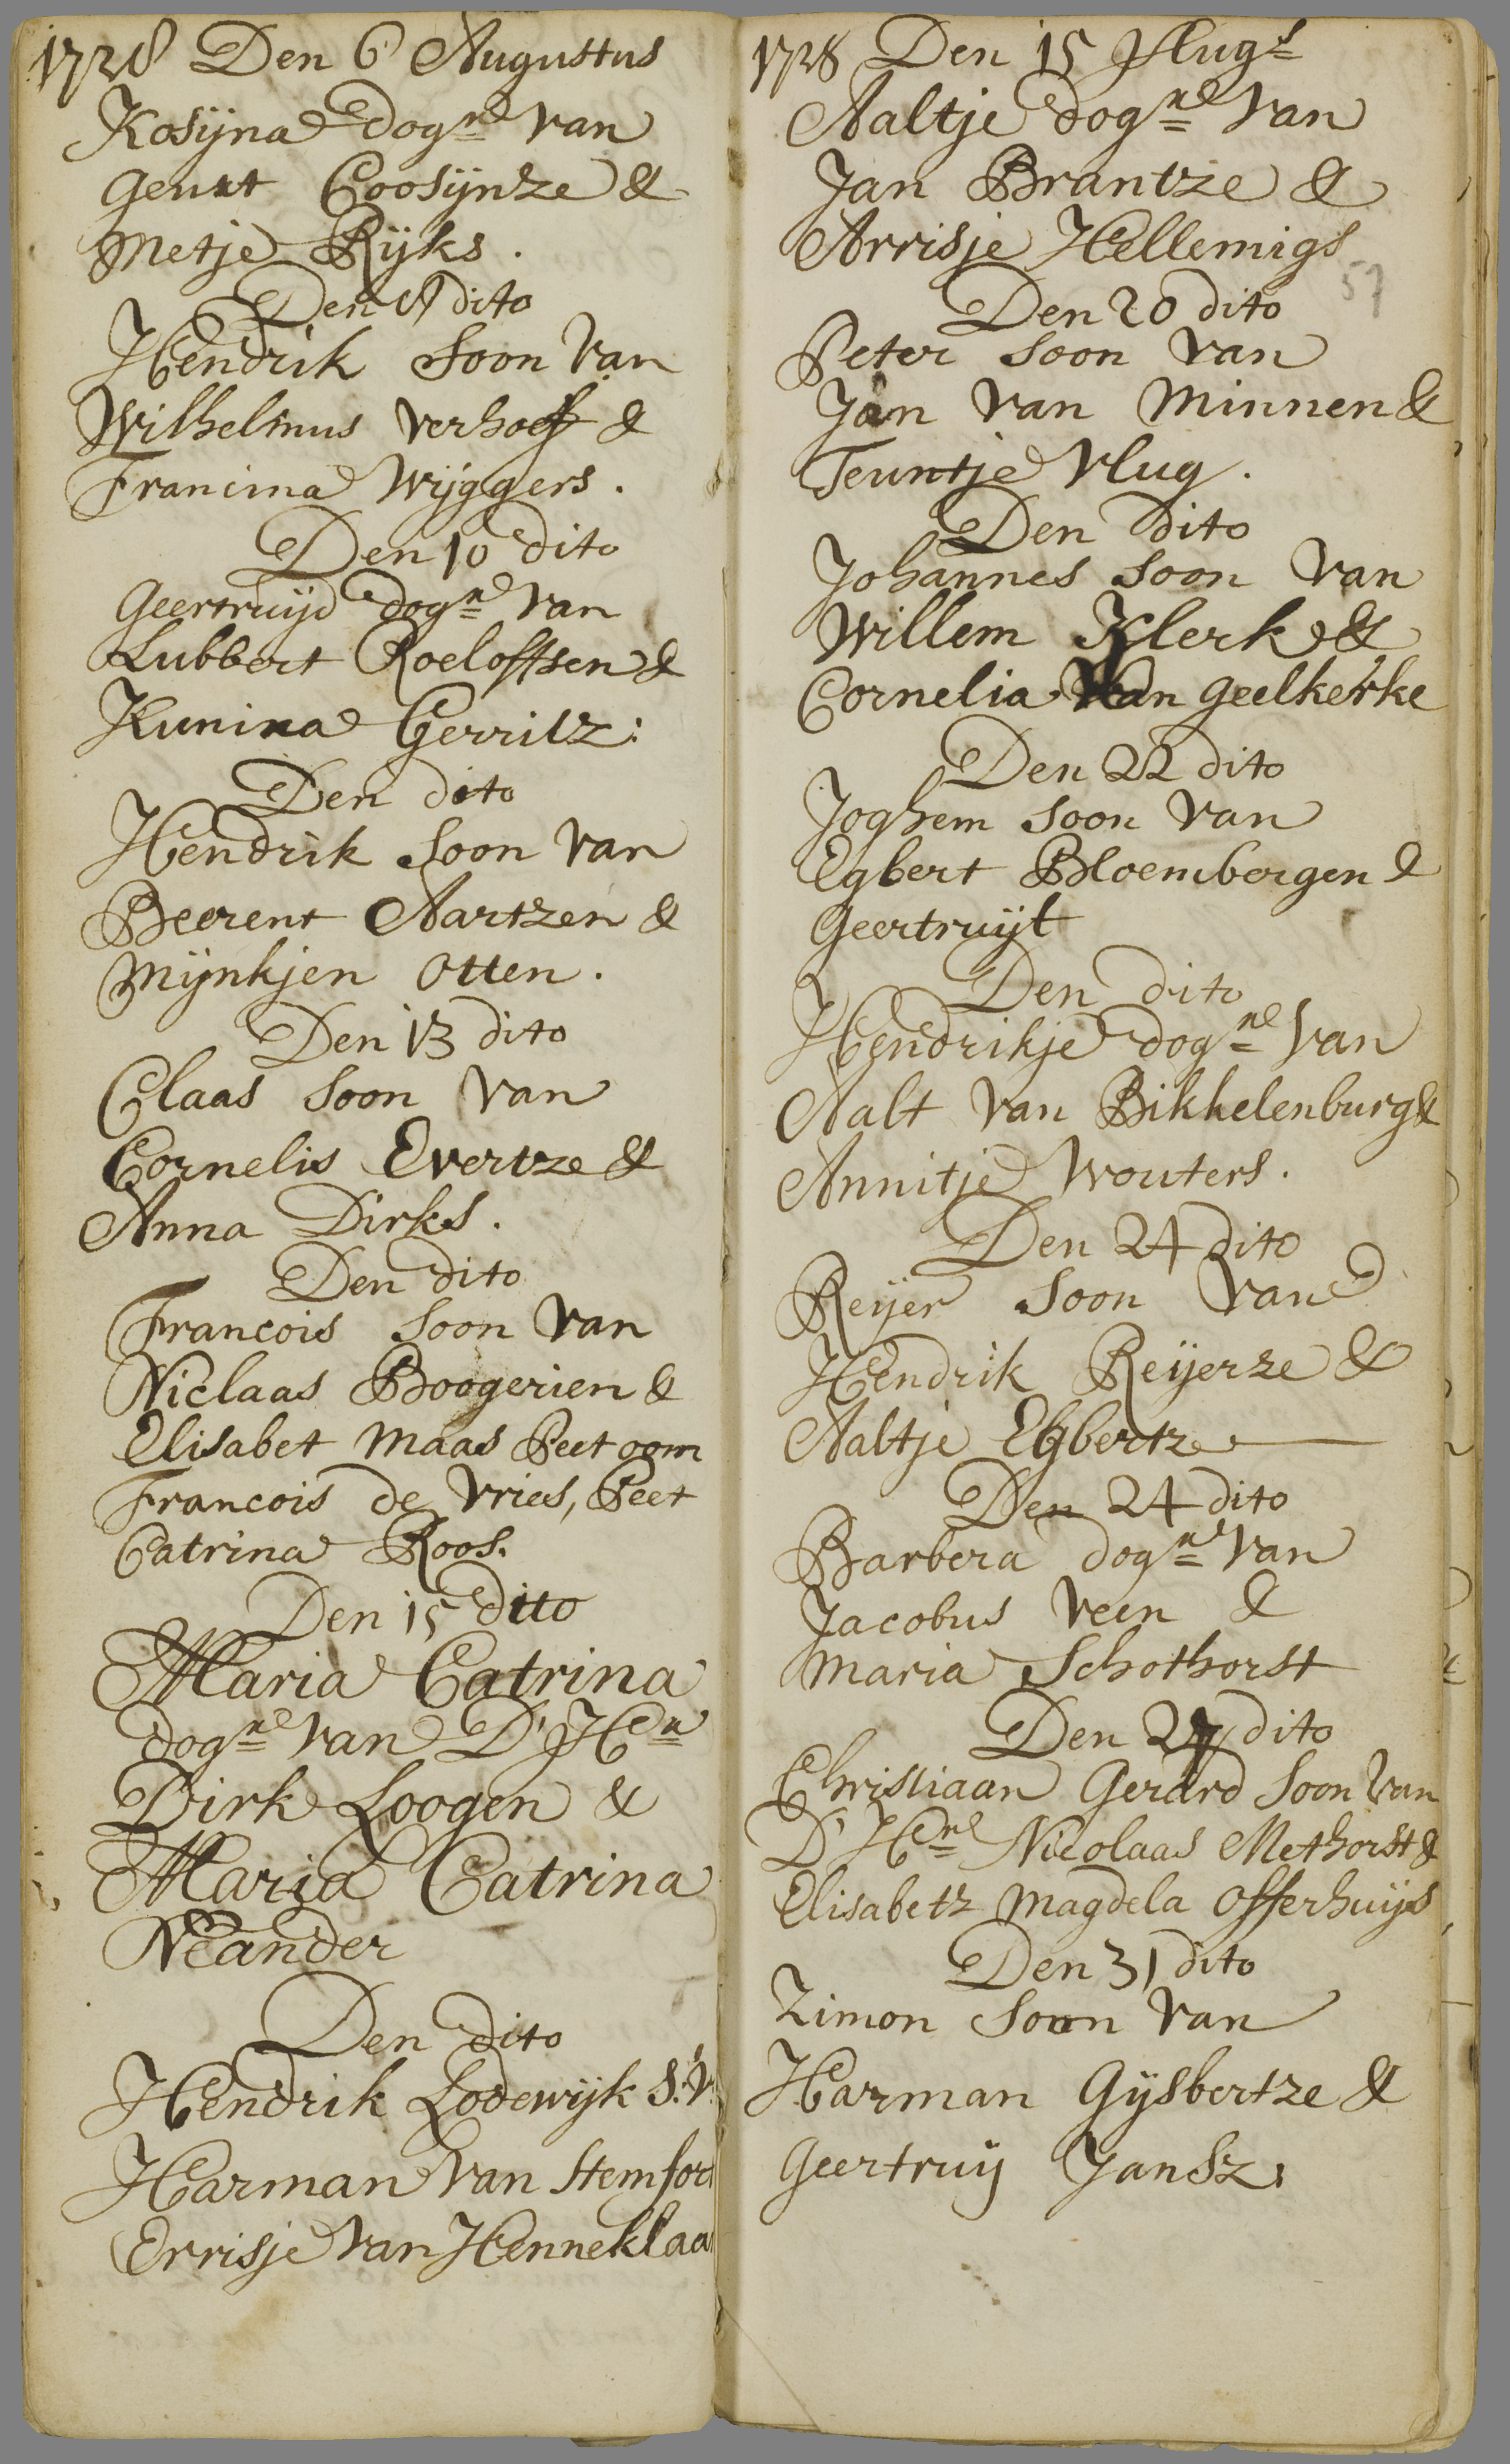 1728 Den 6 Augustus
Kosijna dogne van
Geurt Coosijnze &
Metje Rijks.
Den dito
Hendrik Soon van
Wilhelmus verhoef &
Francina Wijggers.
Den 10 dito
Geertruijd dogne van
Lubbert Roeloffsen &
Kunira Gerritz:
Den dito
Hendrik Soon van
Beerent Aartzen &
Mijnkjen Otten.
Den 13 dito
Claas Soon van
Cornelis Evertze &
Anna Dirks.
Den dito
Francois Soon van
Niclaas Boogerien &
Elisabet Maas Peet oom
Francois de Vries, Peet
Catrina Roos.
Den 15 dito
Maria Catrina
dogne van D' Hn
Dirk Loogen &
Maria Catrina
Neander
Den dito
Hendrik Lodewijk S:V:
Harman van Stemfor
Errisje van Henneklaa
1728 Den 15 Augs
Aaltje dogne van
Jan Brantze &
Arrisje Hellemigs
57
Den 20 dito
Peter Soon van
Jan van Minnen &
Teuntje Vlug.
Den dito
Johannes Soon van
Willem Klerk &
Cornelia van Geelkerke
Den 22 dito
Joghem Soon van
Egbert Bloembergen &
Geertruijt
Den dito
Hendrikje dogne van
Aalt van Bikkelenburg &
Annitje Wouters.
Den 24 dito
Reijer Soon van
Hendrik Reijerze &
Aaltje Egbertz
Den 24 dito
Barbera dogne van
Jacobus Veen &
Maria Schothorst
Den 27 dito
Christiaan Gerard Soon van
D' Hne Nicolaas Methorst &
Elisabetz Magdela Offerhuijs
Den 31 dito
Zimon Soon van
Harman Gijsbertze &
Geertruij Jansz.